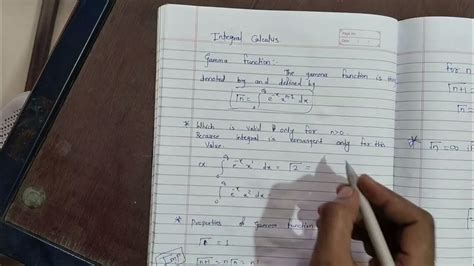 Integral Calculus
Gamma function:
The gamma function is
denoted by and defined by
√n = ∫₀^∞ e^-x x^n-1 dx
* Which is valid only for n>0
Because integral is convergent only for this
Value.
ex ∫₀^∞ e^-x x¹ dx = √2 =
∫₀^∞ e^-x x² dx
* Properties of gamma function
= 1
√n+1 = n√n = n!
for n
√n = ∞ if